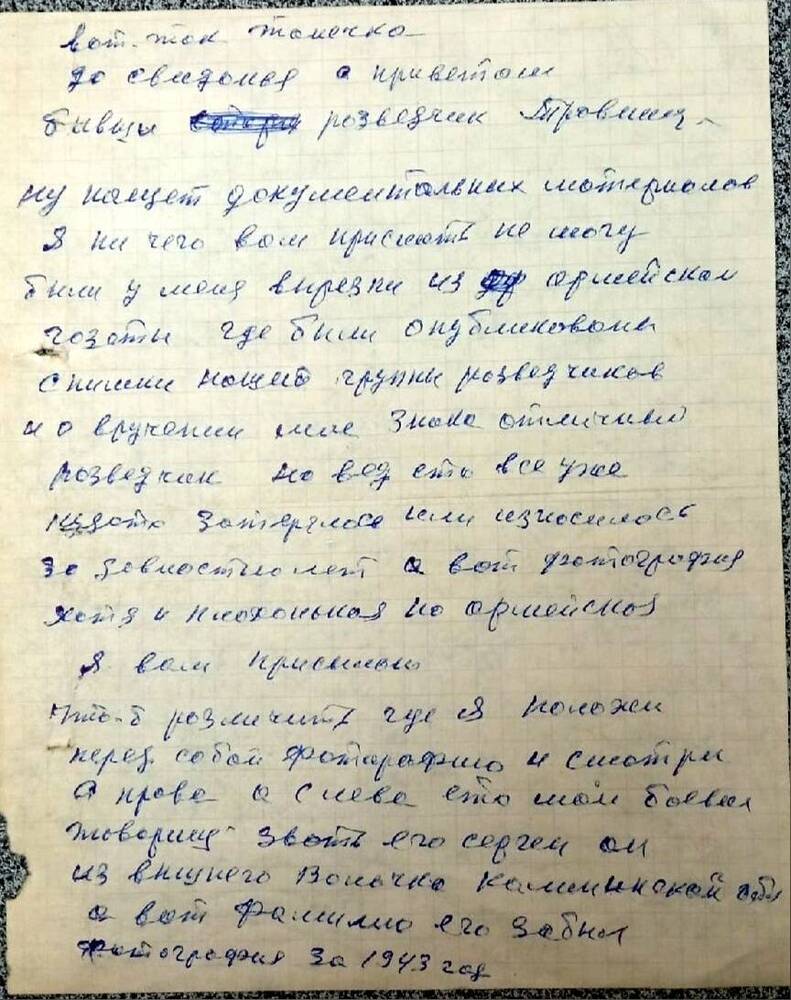 вот так Томочка
до свидомоя с приветом
бывш розведчик
ну нащет документальных мотериолов
я ни чего вом прислоть не могу
были у меня вырезки из ормейском
гозоты где были опубликовоны
снимки ношей групны розведчиков
и о вручении мне Знока отличный
розведчик но вед ето все уже
где то зотерялось или износилось
зо довностью лет а вот фотогрофия
хотя и плохонькоя но ормейскоя
я вом присылою
что-б розличить где я положи
перед собой фотогрофию и смотри
с право а с лево ето мой боевы
товорищ звоть его сергеи он
из вышнего Волочко Колининской обл
а вот фомилию его зобыл
фотогрофия зо 1943 год